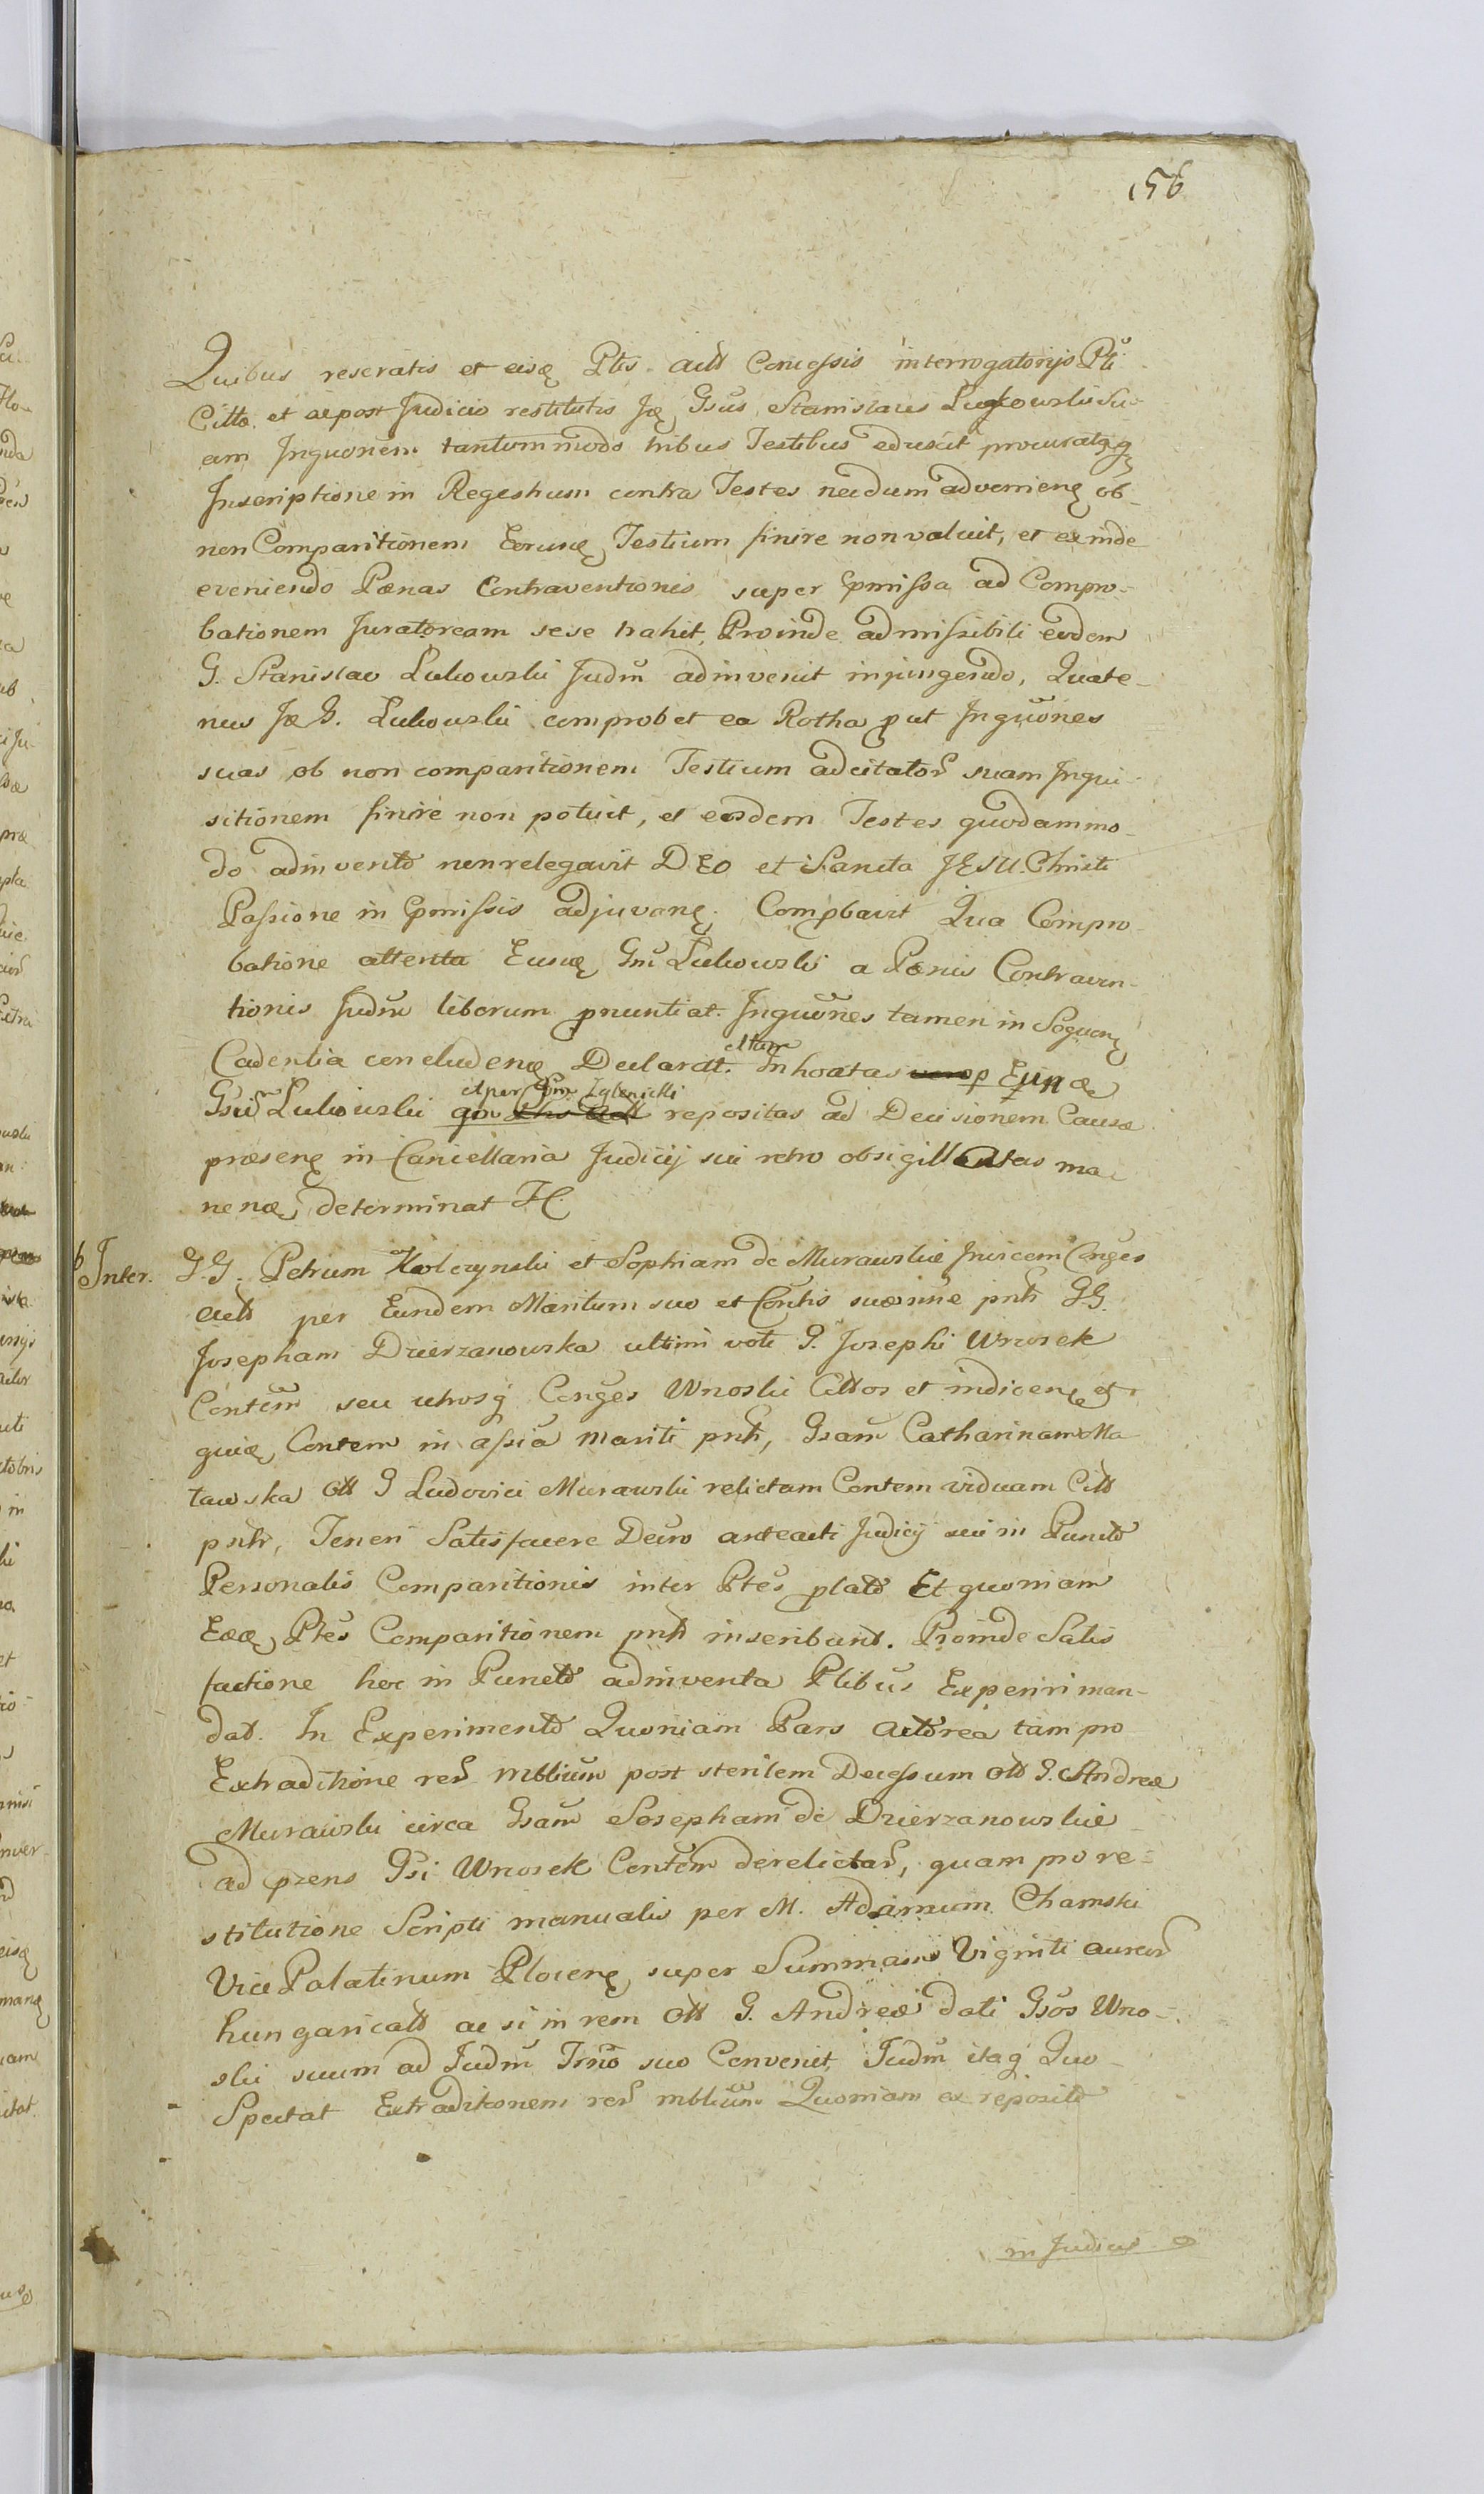 156
Quibus reseratis et eisq Ptis Actt Concessis interrogatorijs Pti
Citta. et ac post Judicio restitutis Jq Gsus Stanislaus Lukowski Su-
am Inquonem tantummodo tribus Testibus eduxit procuratqq
Inscriptione in Regestrum contra Testes necdum advenienq ob-
non Comparitionem Eorunq Testium finire non valuit, et exinde
eveniendo Pœnas Contraventionis super pmissa ad Compro-
bationem Juratoream sese trahit, Proinde admissibili eodem
G. Stanislao Lukowski Judm adinvenit injungendo, Quate-
nus Jq G. Lukowski comprobet ea Rotha put Inquones
suas ob non comparitionem Testium adcitator suam Inqui-
sitionem finire non potuit, et eosdem Testes quodammo-
do adinvento non relegavit DEO et Sancta JESU Christi
Passione in pmissis adjuvanq. Compbavit Qua Compro-
batione attenta Eusq Gm Lukowski a Pœnis Contraven-
tionis Judm liberum pnuntiat. Inquones tamen in Sequenq
Cadentia concludenq Declarat. Inhoatas vero p Eunq
et per Gm Zglenicki
Gsum Lukowski repositas ad Decisionem Causæ
præsenq in Cancellaria Judicij sui retro obsigillatas ma-
nenq, determinat
6 Inter. G.G. Petrum Kolczynski et Sophiam de Murawskie Invicem Conges
Actt per Eundem Maritum suo et Contis suæ nne pntt GG.
Josepham Dzierzanowska ultimi voti G. Josephi Wnosek
Contem seu utrosq Conges Wnoski Cittos et indicenq et
quiq Contem in assia mariti pntt, Gsam Catharinam Ma
tawska Ott G Ludovici Murawski relictam Contem viduam Citt
pntt, Teneri Satisfacere Decro anteacti Judicij sui in Puncto
Personalis Comparitionis inter Ptes plato Et quoniam
Eæq Ptes Comparitionem pntt inscribunt. Proinde Satis
factione hoc in Puncto adinventa Ptibus Experiri man-
dat. In Experimento Quoniam Pars Actorea tam pro
Extraditione rer mblium post sterilem Decessum Ott G. Andreæ
Murawski circa Gsam Josepham de Dzierzanowskie
ad præns Gsi Wnosek Contem derelictar, quam pro re-
stitutione Scripti manualis per M. Adamum Chamski
Vice Palatinum Plocenq super Summam Viginti aureor
hungaricatt ac si in rem Ott G. Andreæ dati Gsos Wno-
ski suum ad Judm Trno suo Convenit, Judm itaq Quo
Spectat Extraditionem rer mblium Quoniam ex reposito
in Judicio